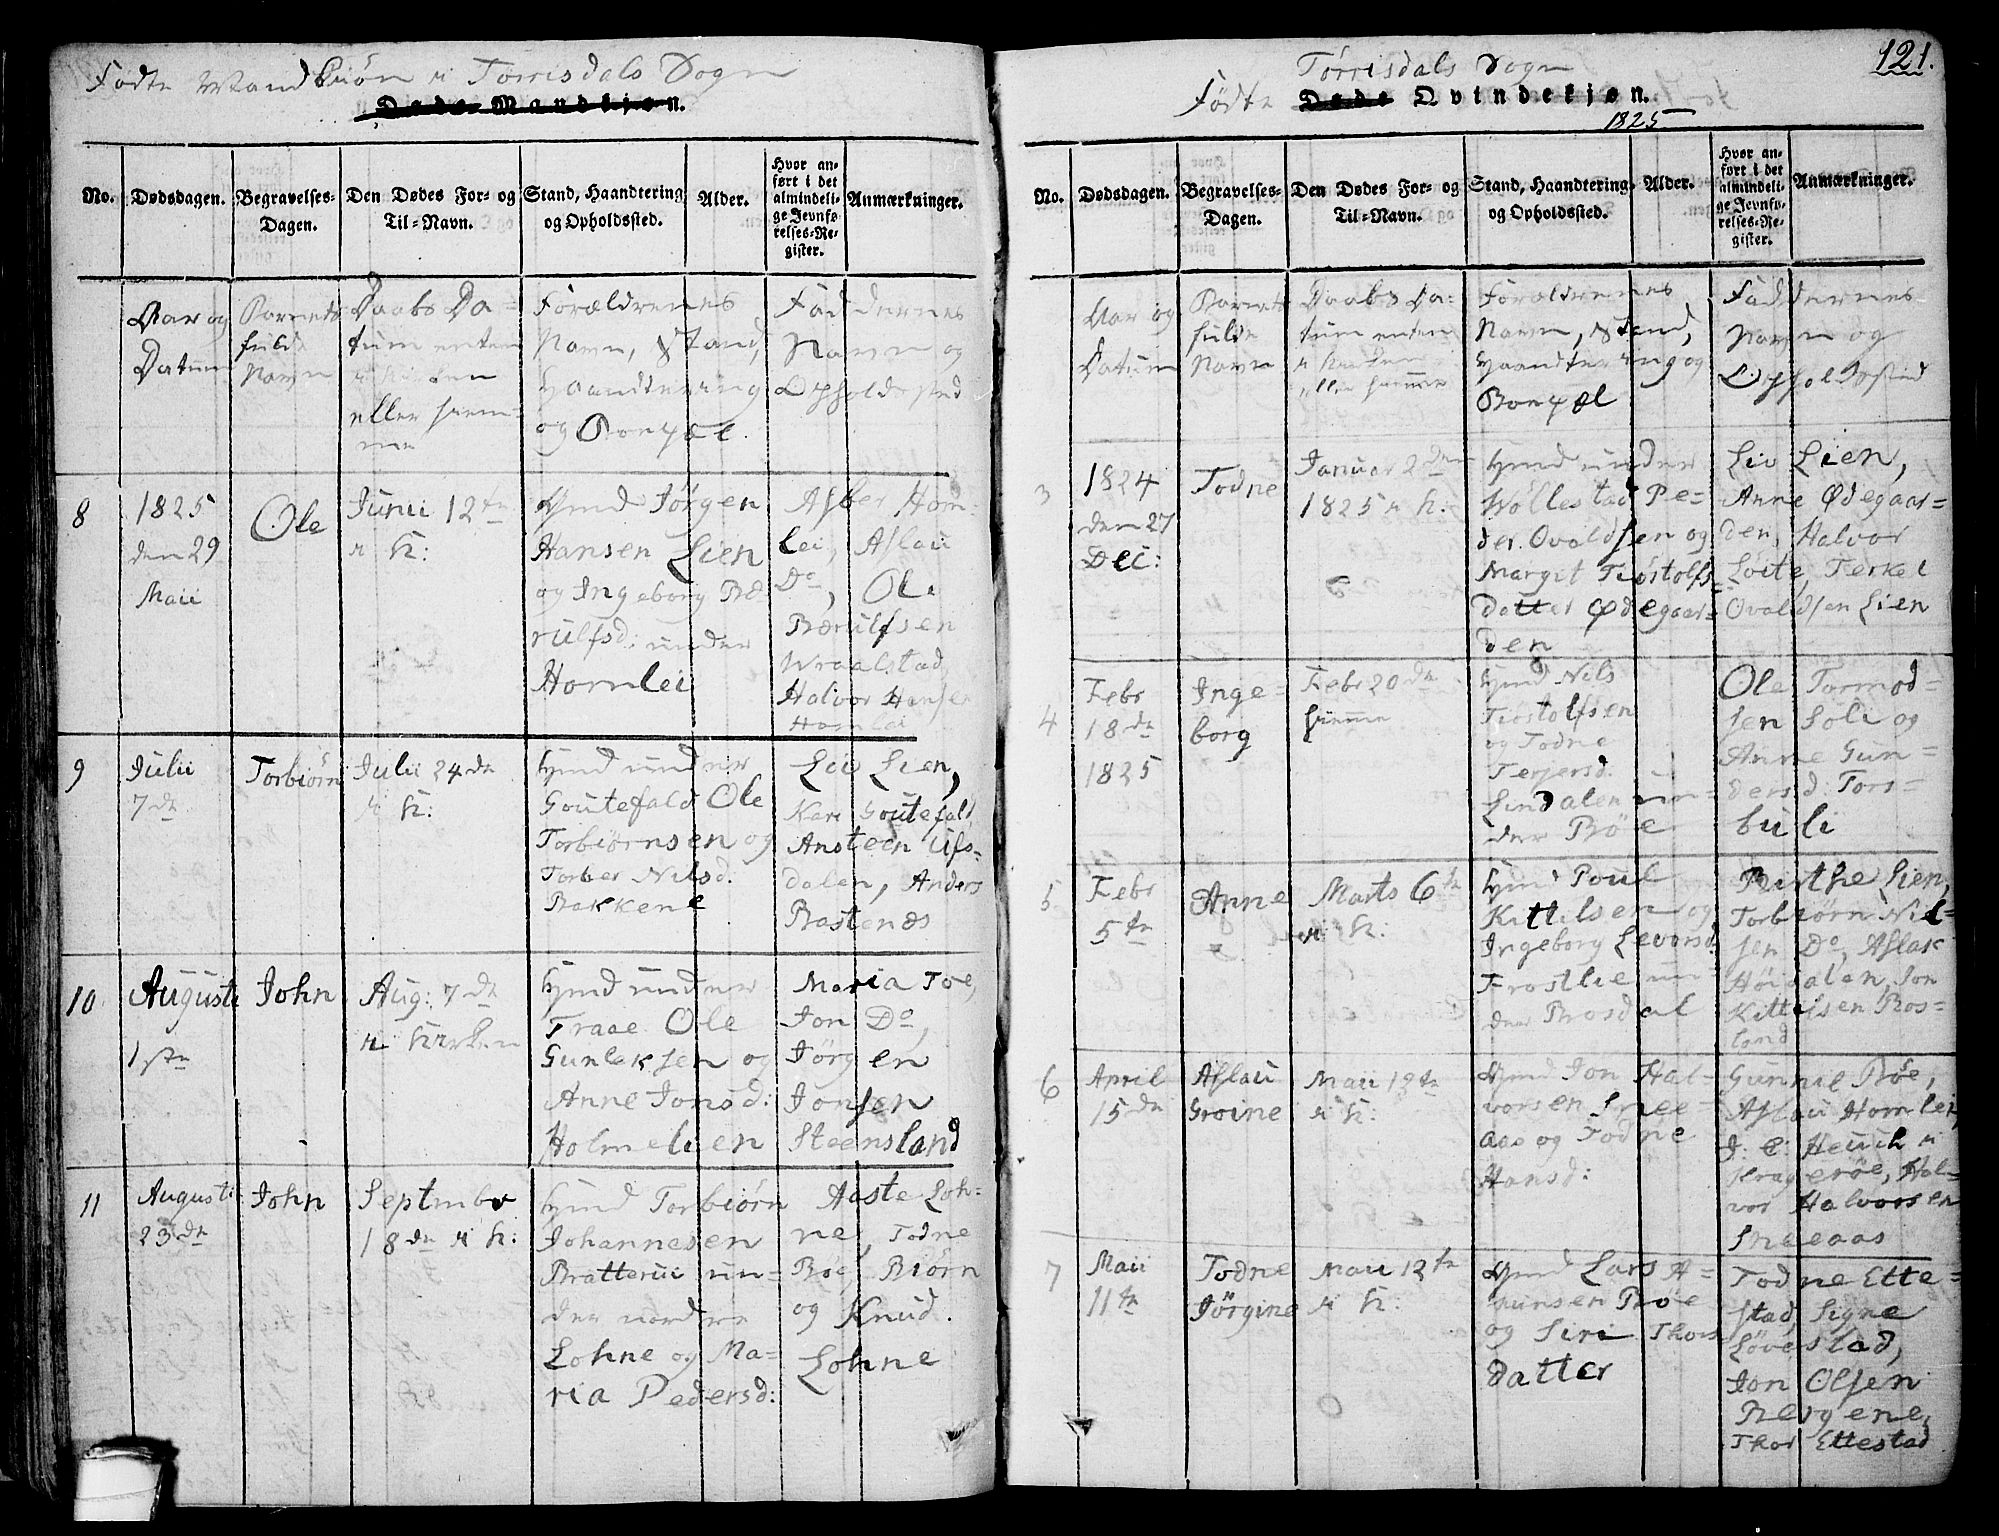 Fødte Mandkiøn i Tørrisdals Sogn
Døde Mandkjøn.
No.
Dødsdagen.
Begravelses-
Dagen.
Den Dødes For- og
Til-Navn.
Stand, Haandtering
og Opholdssted.
Alder.
Hvor an-
ført i det
almindeli-
ge Jevnfø-
relses-Re-
gister.
Anmærkninger.
Aar og
Datum
Barnets
fulde
Navn
Daabs Da-
tum enten
i Kirken
eller hiem-
me
Forældrenes
Navn, Stand,
Haandtering
og Bopæl.
Faddernes
Navn og
Opholdssted
8
1825
den 29
Maii
Ole
Junii 12te
i K:
Gmd Jørgen
Hansen Lien
og Ingeborg Bæ
rulfsd: under
Homlei
Asber Hom-
lei, Aslau
Do, Ole
Bærulfsen
Wraalstad,
Halvor Hansen
Homlei
9
Julii
7de
Torbiørn
Julii 24de
i K:
Hmd under
Goutefald Ole
Torbiørnsen og
Torber Nilsd.
Bakkene
Liv Lien,
Kari Goutefald,
Ansteen Ufs-
dalen, Anders
Bastenæs
10
Augusti
1ste
John
Aug: 7de
i Kirken
Hmd under
Traae Ole
Gunleksen og
Anne Jonsd:
Holmelien
Maria Toe,
Jon Do,
Jørgen
Jonsen
Steensland
11
Augusti
23de
John
September
18de i K:
Hmd Torbiørn
Johannesen
Bratterui un-
der nordre
Lohne og Ma-
ria Pedersd:
Aaste Loh-
ne, Todne
Bøe, Biørn
og Knud
Lohne
121.
Tørrisdals Sogn
Fødte Døde Qvindekjøn.
1825
No.
Dødsdagen.
Begravelses-
Dagen.
Den Dødes For- og
Til-Navn.
Stand, Haandtering
og Opholdssted.
Alder.
Hvor an-
ført i det
almindeli-
ge Jevnfø-
relses-Re-
gister.
Anmærkninger.
Aar og
Datum
Barnets
fulde
Navn
Daabs Da-
tum enten
i Kirken
eller hiemme
Forældrenes
Navn, Stand,
Haandtering og
Bopæl
Faddernes
Navn og
Opholdssted
3
1824
den 27
Dec:
Todne
Januar 2den
1825 i K:
Hmd under
Wøllestad Pe-
der Ovaldsen og
Margit Tiøstolfs-
datter Ødegaar-
den
Liv Lien,
Anne Ødegaar-
den, Halvor
Løite, Terkel
Ovaldsen Lien
4
Febr
18de
1825
Inge-
borg
Febr 20de
hiemme
Hmd Nils
Tiøstolfsen
og Todne
Terjersd.
Lindalen un-
der Bøe
Ole Tormod-
sen Soli og
Anne Gun-
dersd: Tors-
buli
5
Febr
5te
Anne
Marts 6te
i K:
Hmd Poul
Kittilsen og
Ingeborg Levorsd.
Frostlie un-
der Rosdal
Birthe Lien,
Torbiørn Nil-
sen Do, Aslak
Høidalen, Jon
Kittilsen Ros-
land
6
April
15de
Aslau
Groine
Maii 12te
i K:
Gmd Jon Hal-
vorsen Snee-
aas og Todne
Hansd:
Gunnil Bøe,
Aslau Homlei,
J. C. Heuch i
Kragerøe, Hal-
vor Halvorsen
Sneeaas
7
Maii
11te
Todne
Jørgine
Maii 12te
i K:
Gmd Lars A-
Bøe
og Siri Thors
datter
Todne Ette-
stad, Signe
Løvestad,
Jon Olsen
Bergene,
Thor Ettestad